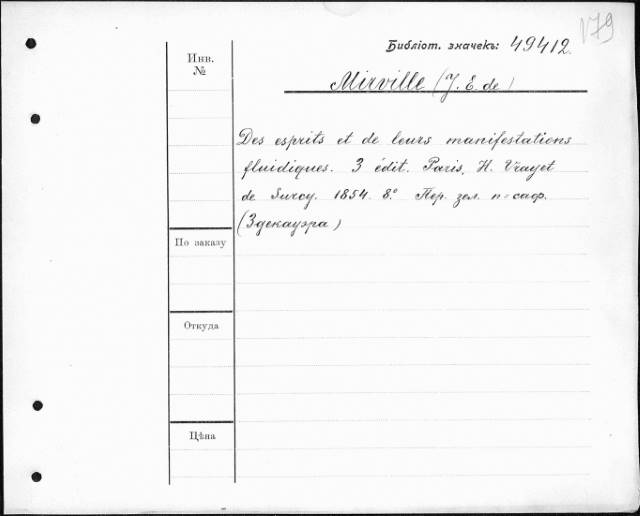 179
Библіот. значекъ: 49412.
Инв.
№
Mirville (J. E. de)
Des esprits et de leurs manifestations
fluidiques. 3 édit. Paris, H. Vrayet
de Surcy. 1854. 8º Пер. зел. п=саф.
(Здекауэра)
По заказу
Откуда
Цѣна